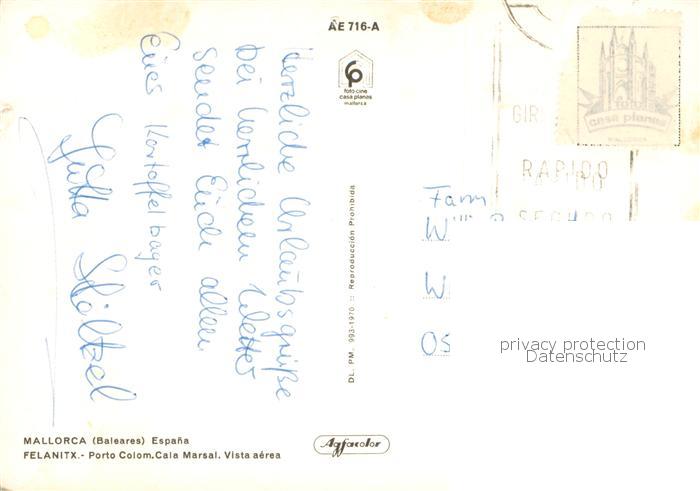 AE 716-A
foto-cine
casa planas
mallorca
Herzliche Urlaubsgrüße
bei herrlichem Wetter
sendet Euch allen
Jutta
DL. PM. 993-1970 :: Reproducción Prohibida
foto
casa planas
MALLORCA
GIR
RAPIDO
SEGURO
Fam
W
W
OS
privacy protection
Datenschutz
MALLORCA (Baleares) España
FELANITX.- Porto Colom. Cala Marsal. Vista aérea
Agfacolor